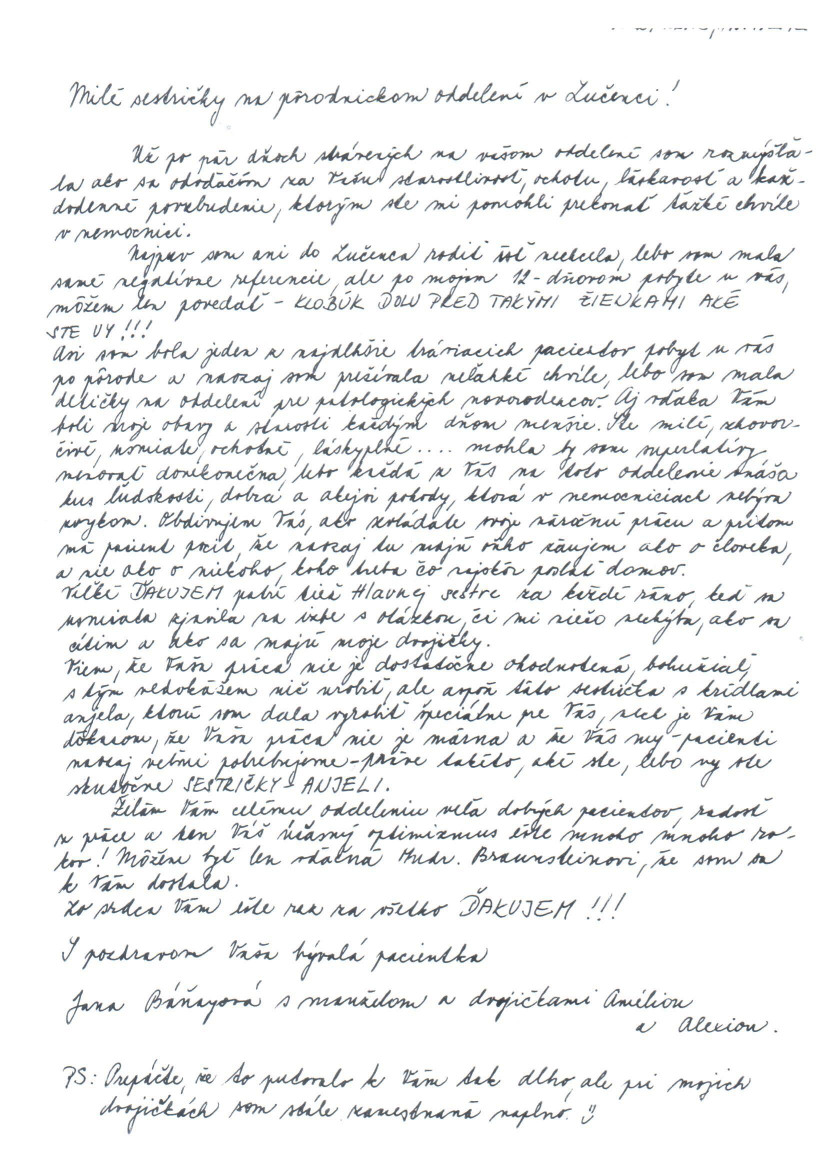 Milé sestričky na pôrodníckom oddelení v Lučenci!
Už po pár dňoch strávených na vašom oddelení som rozmýšľa-
la ako sa odvďačím za Vašu starostlivosť, ochotu, láskavosť a kaž-
dodenné povzbudenie, ktorým ste mi pomohli prekonať ťažké chvíle
v nemocnici.
Najprv som ani do Lučenca rodiť ísť nechcela, lebo som mala
samé negatívne referencie, ale po mojom 12-dňovom pobyte u vás,
môžem len povedať - KLOBÚK DOLU PRED TAKÝMI ŽIENKAMI AKÉ
STE VY!!!
Asi som bola jeden z najdlhšie tráviacich pacientov pobyt u vás
po pôrode a naozaj som prežívala neľahké chvíle, lebo som mala
detičky na oddelení pre patologických novorodencov. Aj vďaka Vám
boli moje obavy a starosti každým dňom menšie. Ste milé, zhovor-
čivé, usmiate, ochotné, láskyplné .... mohla by som superlatívy
menovať donekonečna, lebo každá z Vás na toto oddelenie vnáša
kus ľudskosti, dobra a akejsi pohody, ktorá v nemocniciach nebýva
zvykom. Obdivujem Vás, ako zvládate svoju náročnú prácu a pritom
má pacient pocit, že naozaj tu majú oňho záujem ako o človeka,
a nie ako o niekoho, koho treba čo najskôr poslať domov.
Veľké ĎAKUJEM patrí tiež Hlavnej sestre za každé ráno, keď sa
usmiata zjavila na izbe s otázkou, či mi niečo nechýba, ako sa
cítim a ako sa majú moje dvojičky.
Viem, že Vaša práca nie je dostatočne ohodnotená, bohužiaľ,
s tým nedokážem nič urobiť, ale aspoň táto sestrička s krídlami
anjela, ktorú som dala vyrobiť špeciálne pre Vás, nech je Vám
dôkazom, že Vaša práca nie je márna a že Vás my-pacienti
naozaj veľmi potrebujeme-práve takéto, aké ste, lebo vy ste
skutočne SESTRIČKY - ANJELI.
Želám Vám celému oddeleniu veľa dobrých pacientov, radosť
z práce a ten Váš úžasný optimizmus ešte mnoho mnoho ro-
kov! Môžem byť len vďačná Mudr. Braunsteinovi, že som sa
k Vám dostala.
Zo srdca Vám ešte raz za všetko ĎAKUJEM!!!
S pozdravom Vaša bývalá pacientka
Jana Báňayová s manželom a dvojičkami Améliou
a Alexiou.
PS: Prepáčte, že to putovalo k Vám tak dlho, ale pri mojich
dvojičkách som stále zamestnaná naplno. :)